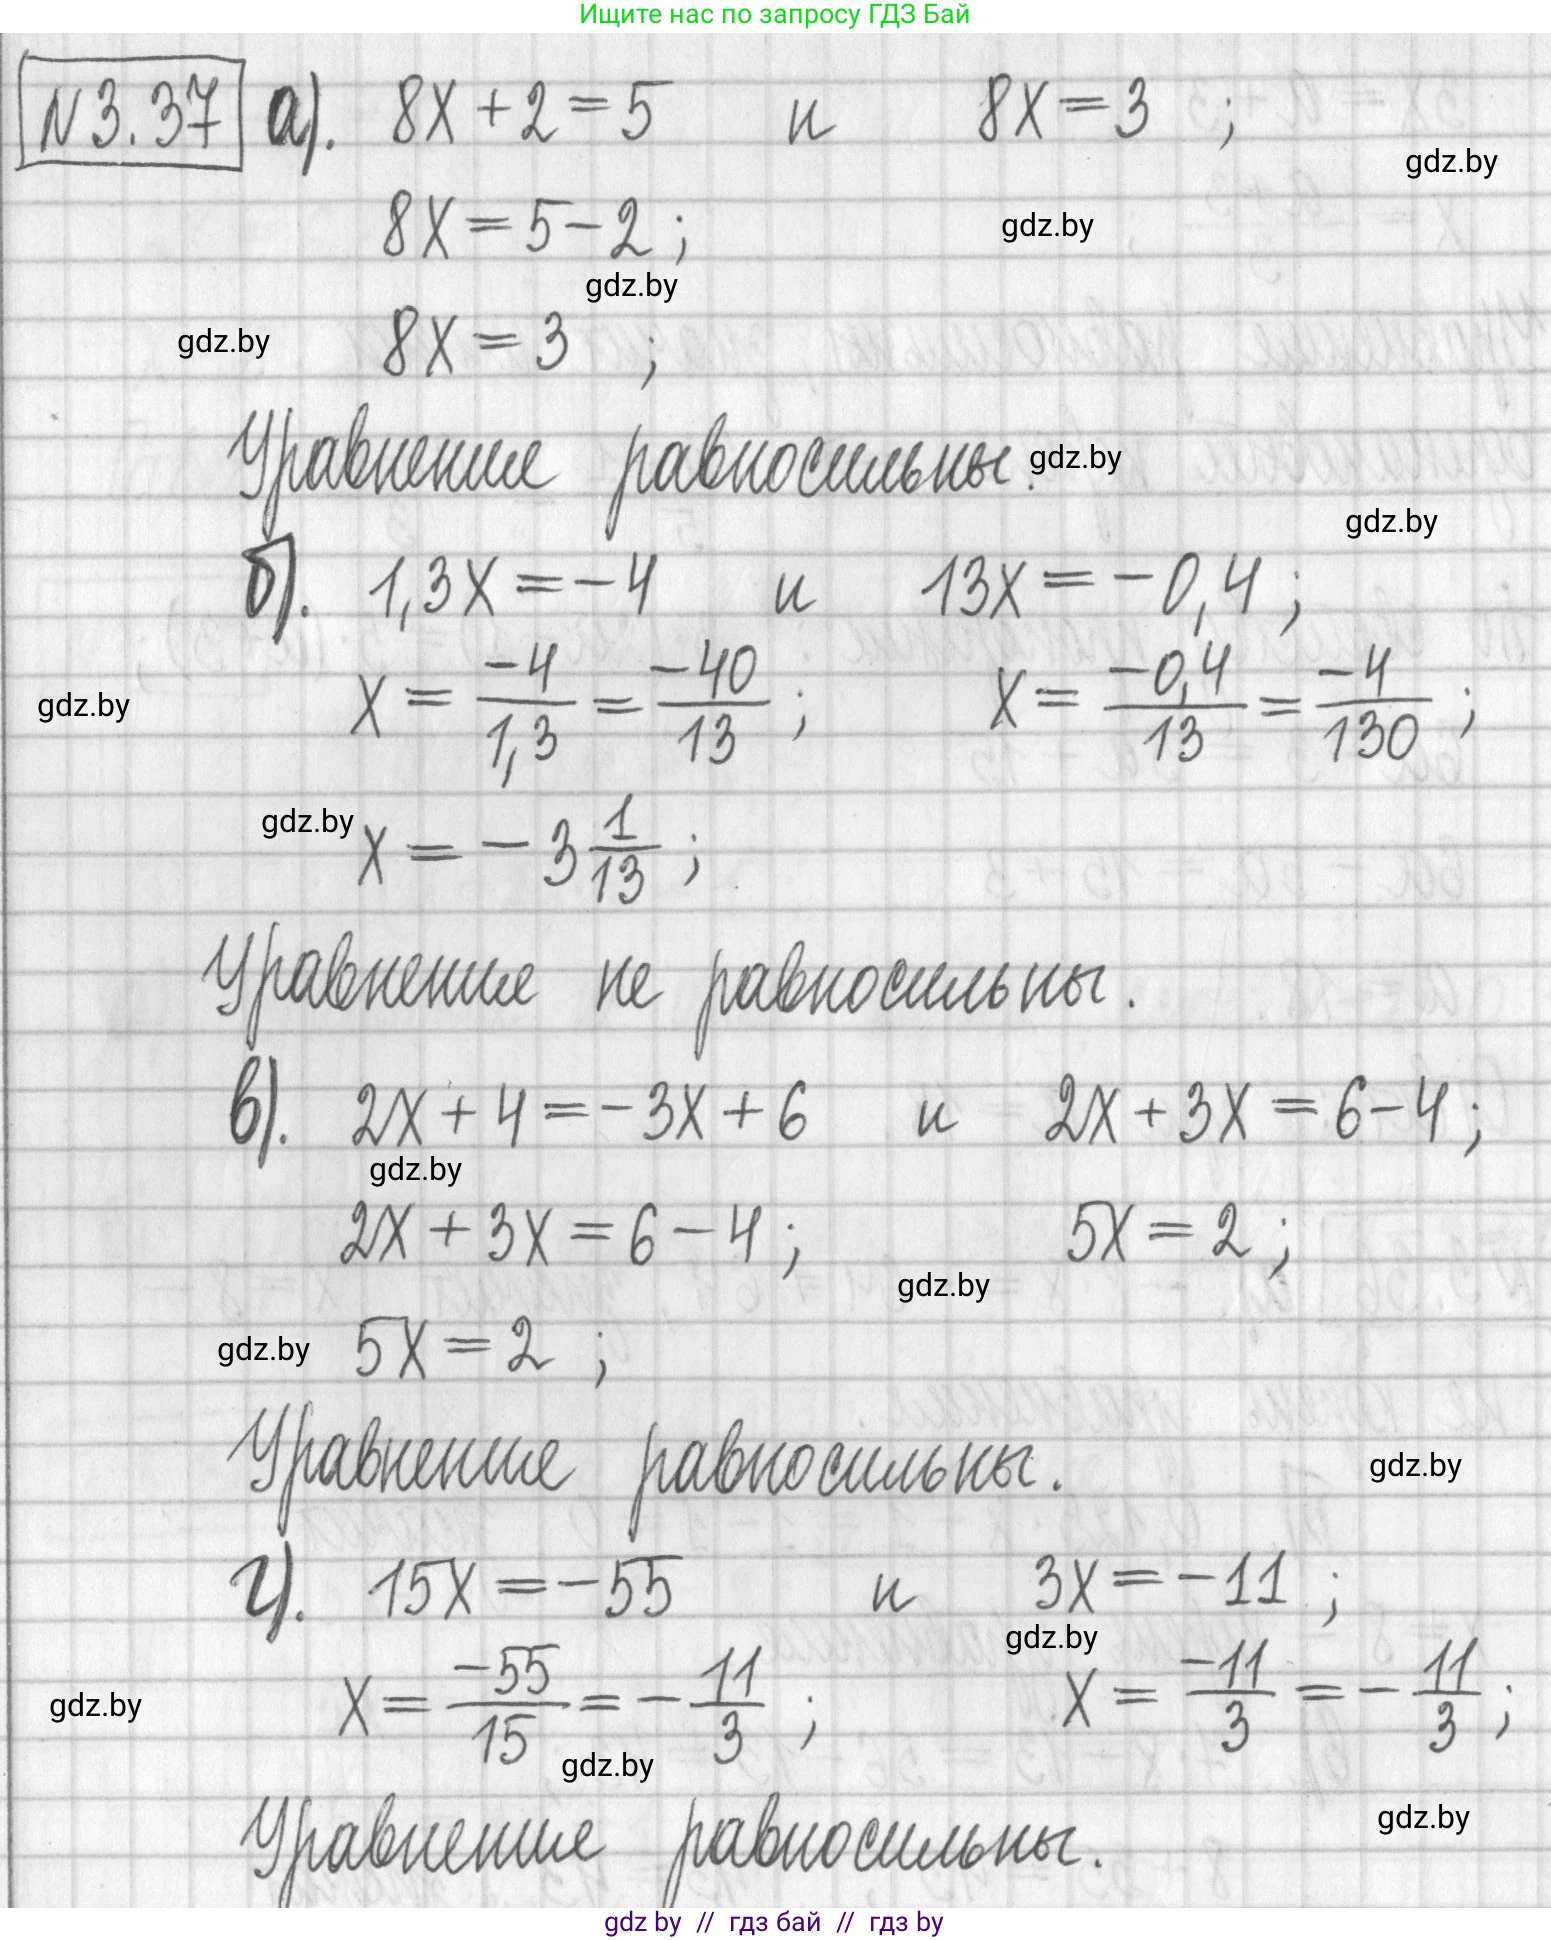 Ищите нас по запросу ГДЗ Бай
N 3.37 а). 8x + 2 = 5 и 8x = 3 ;
gdz.by
8x = 5 - 2 ;
gdz.by
gdz.by
8x = 3 ;
gdz.by
Уравнение равносильны.
gdz.by
gdz.by
б). 1,3x = -4 и 13x = -0,4 ;
x = -4/1,3 = -40/13 ; x = -0,4/13 = -4/130 ;
gdz.by
gdz.by
x = -3 1/13 ;
Уравнение не равносильны.
в). 2x + 4 = -3x + 6 и 2x + 3x = 6 - 4 ;
gdz.by
2x + 3x = 6 - 4 ; 5x = 2 ;
gdz.by
gdz.by
5x = 2 ;
Уравнение равносильны.
gdz.by
г). 15x = -55 и 3x = -11 ;
gdz.by
x = -55/15 = -11/3 ; x = -11/3 = -11/3 ;
gdz.by
gdz.by
gdz.by
Уравнение равносильны.
gdz by // гдз бай // гдз by